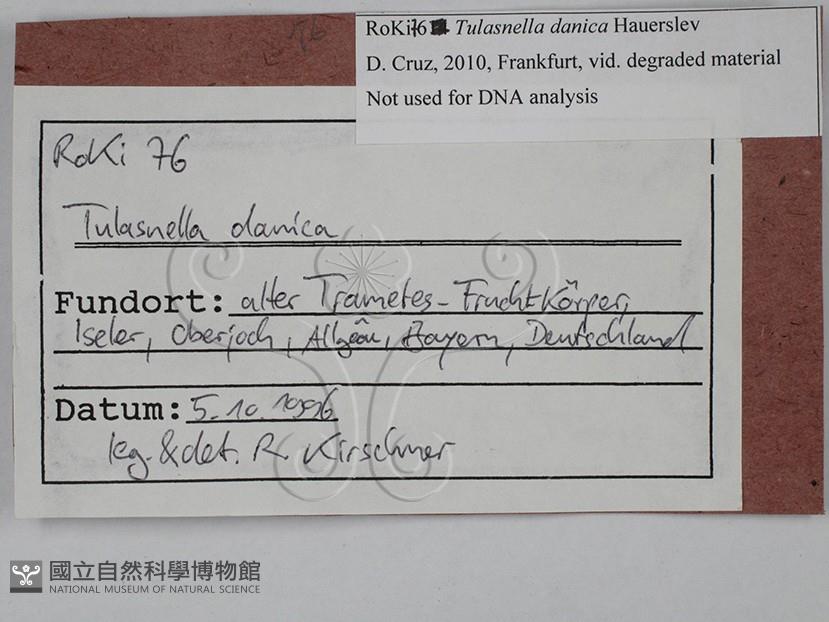 76
RoKi76 Tulasnella danica Hauerslev
D. Cruz, 2010, Frankfurt, vid. degraded material
Not used for DNA analysis
RoKi 76
Tulasnella danica
Fundort: alter Trametes-Fruchtkörper,
Iseler, Oberjoch, Allgäu, Bayern, Deutschland
Datum: 5.10.1996
leg. & det. R. Kirschner
國立自然科學博物館
NATIONAL MUSEUM OF NATURAL SCIENCE